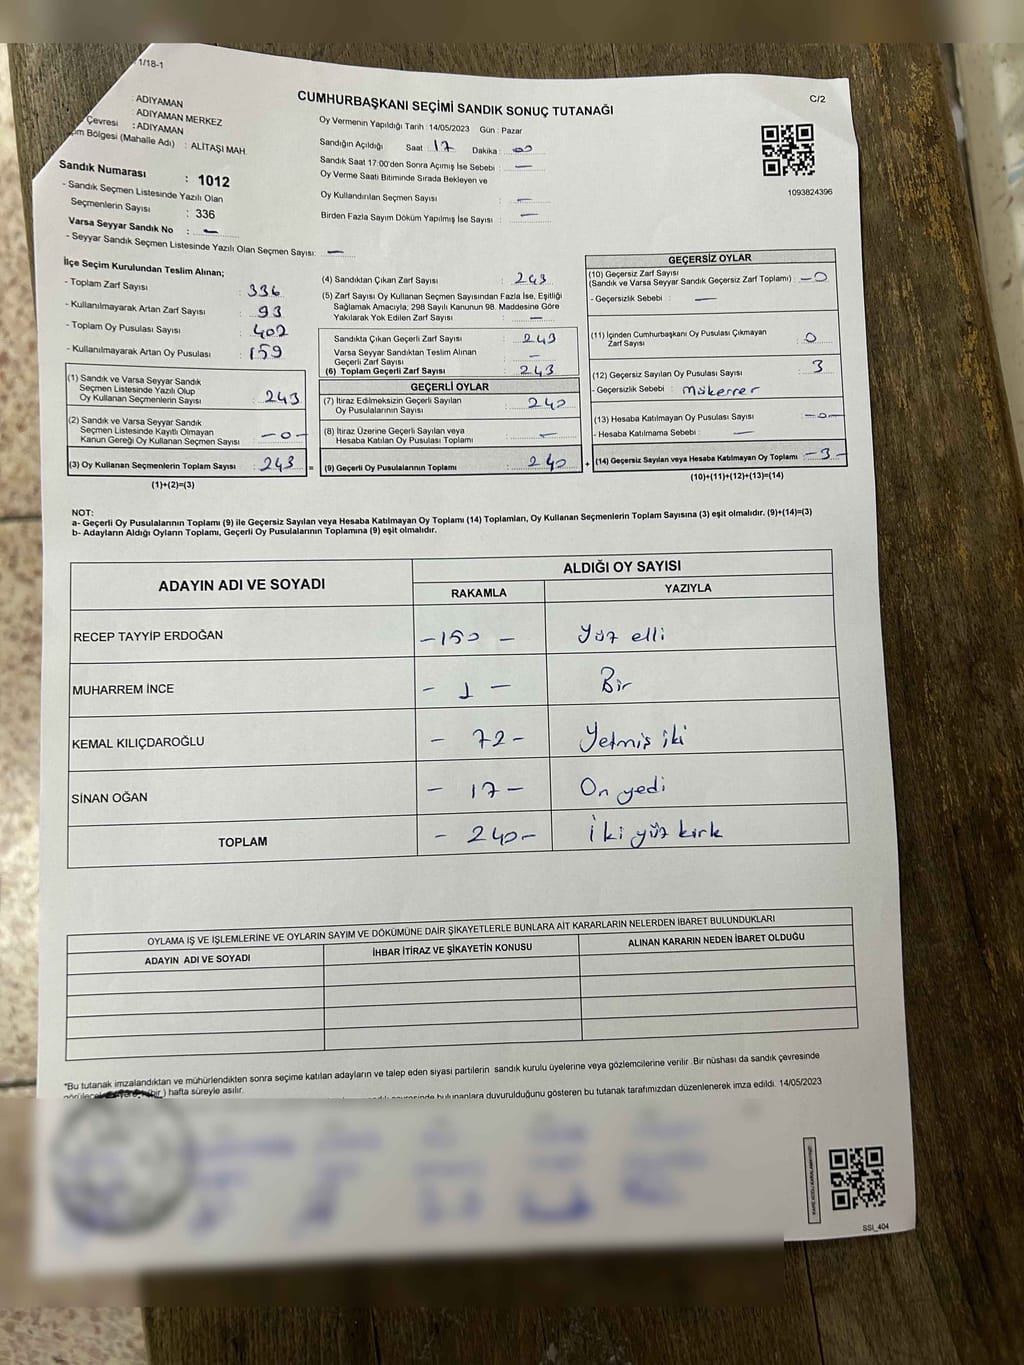 1/18-1
: ADIYAMAN
: ADIYAMAN MERKEZ
Çevresi : ADIYAMAN
Bölgesi (Mahalle Adı) : ALİTAŞI MAH.
CUMHURBAŞKANI SEÇİMİ SANDIK SONUÇ TUTANAĞI
C/2
Oy Vermenin Yapıldığı Tarih : 14/05/2023 Gün : Pazar
Sandığın Açıldığı Saat : 17 Dakika : 00
Sandık Saat 17:00'den Sonra Açımış İse Sebebi : —
Oy Verme Saati Bitiminde Sırada Bekleyen ve
Oy Kullandırılan Seçmen Sayısı : —
Birden Fazla Sayım Döküm Yapılmış İse Sayısı : —
1093824396
Sandık Numarası : 1012
- Sandık Seçmen Listesinde Yazılı Olan
Seçmenlerin Sayısı : 336
Varsa Seyyar Sandık No : —
- Seyyar Sandık Seçmen Listesinde Yazılı Olan Seçmen Sayısı: —
İlçe Seçim Kurulundan Teslim Alınan;
- Toplam Zarf Sayısı : 336
- Kullanılmayarak Artan Zarf Sayısı : 93
- Toplam Oy Pusulası Sayısı : 402
- Kullanılmayarak Artan Oy Pusulası : 159
(1) Sandık ve Varsa Seyyar Sandık
Seçmen Listesinde Yazılı Olup
Oy Kullanan Seçmenlerin Sayısı : 243
(2) Sandık ve Varsa Seyyar Sandık
Seçmen Listesinde Kayıtlı Olmayan
Kanun Gereği Oy Kullanan Seçmen Sayısı : —0—
(3) Oy Kullanan Seçmenlerin Toplam Sayısı : 243 =
(1)+(2)=(3)
(4) Sandıktan Çıkan Zarf Sayısı : 243
(5) Zarf Sayısı Oy Kullanan Seçmen Sayısından Fazla İse, Eşitliği
Sağlamak Amacıyla, 298 Sayılı Kanunun 98. Maddesine Göre
Yakılarak Yok Edilen Zarf Sayısı : —
Sandıkta Çıkan Geçerli Zarf Sayısı : 243
Varsa Seyyar Sandıktan Teslim Alınan
Geçerli Zarf Sayısı : —
(6) Toplam Geçerli Zarf Sayısı : 243
GEÇERLİ OYLAR
(7) İtiraz Edilmeksizin Geçerli Sayılan
Oy Pusulalarının Sayısı : 240
(8) İtiraz Üzerine Geçerli Sayılan veya
Hesaba Katılan Oy Pusulası Toplamı : —
(9) Geçerli Oy Pusulalarının Toplamı : 240 +
GEÇERSİZ OYLAR
(10) Geçersiz Zarf Sayısı
(Sandık ve Varsa Seyyar Sandık Geçersiz Zarf Toplamı) : —0
- Geçersizlik Sebebi : —
(11) İçinden Cumhurbaşkanı Oy Pusulası Çıkmayan
Zarf Sayısı : 0
(12) Geçersiz Sayılan Oy Pusulası Sayısı : 3
- Geçersizlik Sebebi : Mükerrer
(13) Hesaba Katılmayan Oy Pusulası Sayısı : —0—
- Hesaba Katılmama Sebebi : —
(14) Geçersiz Sayılan veya Hesaba Katılmayan Oy Toplamı : —3—
(10)+(11)+(12)+(13)=(14)
NOT:
a- Geçerli Oy Pusulalarının Toplamı (9) ile Geçersiz Sayılan veya Hesaba Katılmayan Oy Toplamı (14) Toplamları, Oy Kullanan Seçmenlerin Toplam Sayısına (3) eşit olmalıdır. (9)+(14)=(3)
b- Adayların Aldığı Oyların Toplamı, Geçerli Oy Pusulalarının Toplamına (9) eşit olmalıdır.
ADAYIN ADI VE SOYADI
ALDIĞI OY SAYISI
RAKAMLA YAZIYLA
RECEP TAYYİP ERDOĞAN —150— Yüz elli
MUHARREM İNCE — 1 — Bir
KEMAL KILIÇDAROĞLU — 72 — Yetmiş iki
SİNAN OĞAN — 17 — On yedi
TOPLAM — 240 — İki yüz kırk
OYLAMA İŞ VE İŞLEMLERİNE VE OYLARIN SAYIM VE DÖKÜMÜNE DAİR ŞİKAYETLERLE BUNLARA AİT KARARLARIN NELERDEN İBARET BULUNDUKLARI
ADAYIN ADI VE SOYADI İHBAR İTİRAZ VE ŞİKAYETİN KONUSU ALINAN KARARIN NEDEN İBARET OLDUĞU
*Bu tutanak imzalandıktan ve mühürlendikten sonra seçime katılan adayların ve talep eden siyasi partilerin sandık kurulu üyelerine veya gözlemcilerine verilir .Bir nüshası da sandık çevresinde
(bir) hafta süreyle asılır.
bulunanlara duyurulduğunu gösteren bu tutanak tarafımızdan düzenlenerek imza edildi. 14/05/2023
SSI_404